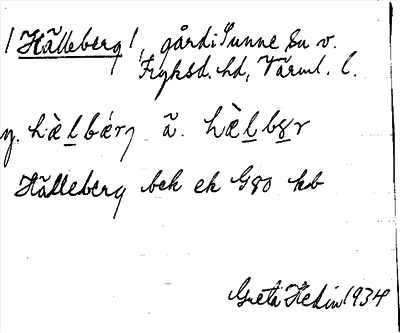 /Hälleberg/, gård i Sunne sn v.
Fryksd. hd, Värml. l.
y. hæ̀l̲bǽrj ä. hæ̀l̲bær
Hälleberg bek ek G80 kb
Greta Hedin 1934